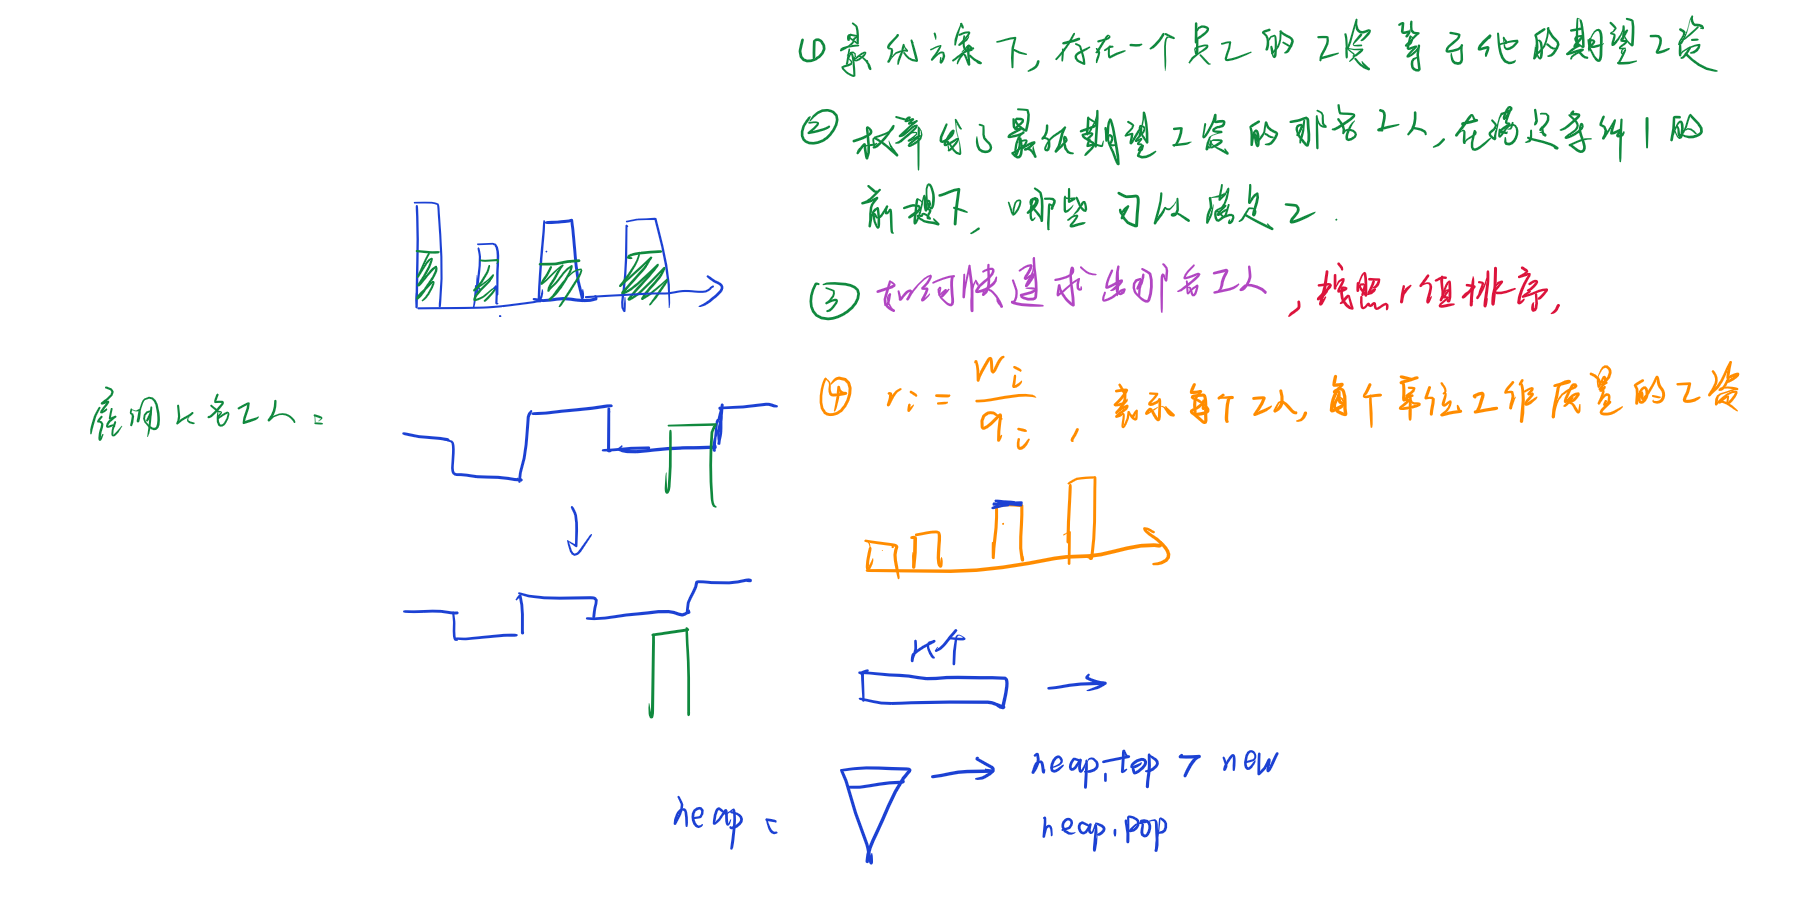 ① 最优方案下, 存在一个员工的工资等于他的期望工资
② 枚举找了最低期望工资的那名工人, 在满足条件1的
前提下, 哪些可以满足2.
③ 如何快速求出那名工人, 按照r值排序,
雇佣K名工人:
④ ri = wi / qi , 表示每个工人, 每个单位工作质量的工资
K个
heap.top > new
heap:
heap.pop